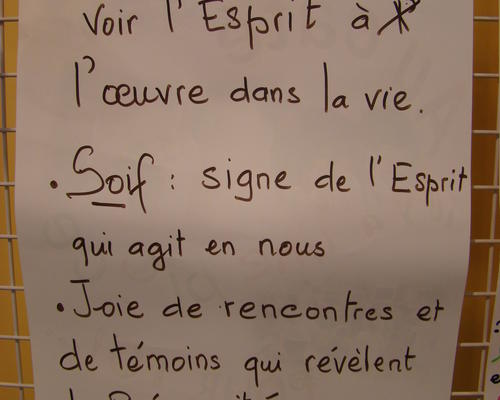 Voir l'Esprit à
l'œuvre dans la vie.
• Soif : signe de l'Esprit
qui agit en nous
• Joie de rencontres et
de témoins qui révèlent